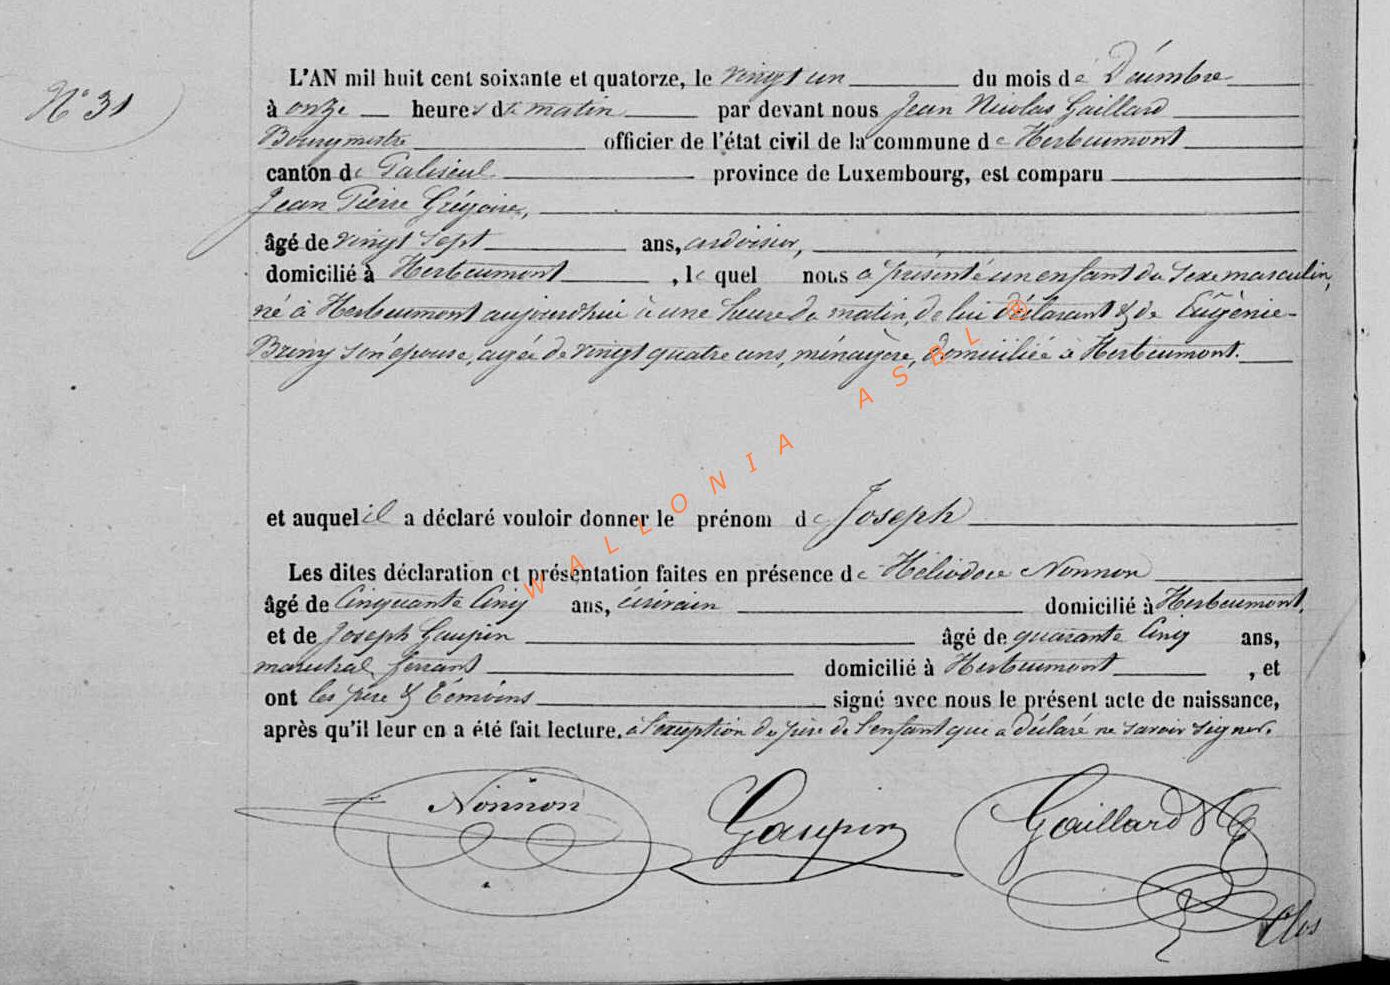 N° 31
L'AN mil huit cent soixante et quatorze, le vingt un du mois de Décembre
à onze heures du matin par devant nous Jean Nicolas Gaillard
Bourgmestre officier de l'état civil de la commune de Herbeumont
canton de Paliseul province de Luxembourg, est comparu
Jean Pierre Grégoire,
âgé de vingt sept ans, ardoisier,
domicilié à Herbeumont, le quel nous a présenté un enfant du sexe masculin,
né à Herbeumont aujourd'hui à une heure du matin, de lui déclarant & de Eugènie
Briny son épouse, agée de vingt quatre ans, ménagère, domiciliée à Herbeumont.
et auquel il a déclaré vouloir donner le prénom de Joseph
Les dites déclaration et présentation faites en présence de Héliodore Nonnon
âgé de Cinquante Cinq ans, écrivain domicilié à Herbeumont,
et de Joseph Gaupin âgé de quarante Cinq ans,
marechal ferrant domicilié à Herbeumont, et
ont les père & témoins signé avec nous le présent acte de naissance,
après qu'il leur en a été fait lecture. à l'exception du père de l'enfant qui a déclaré ne savoir signer.
Nonnon Gaupin Gaillard
WALLONIA ASBL ®